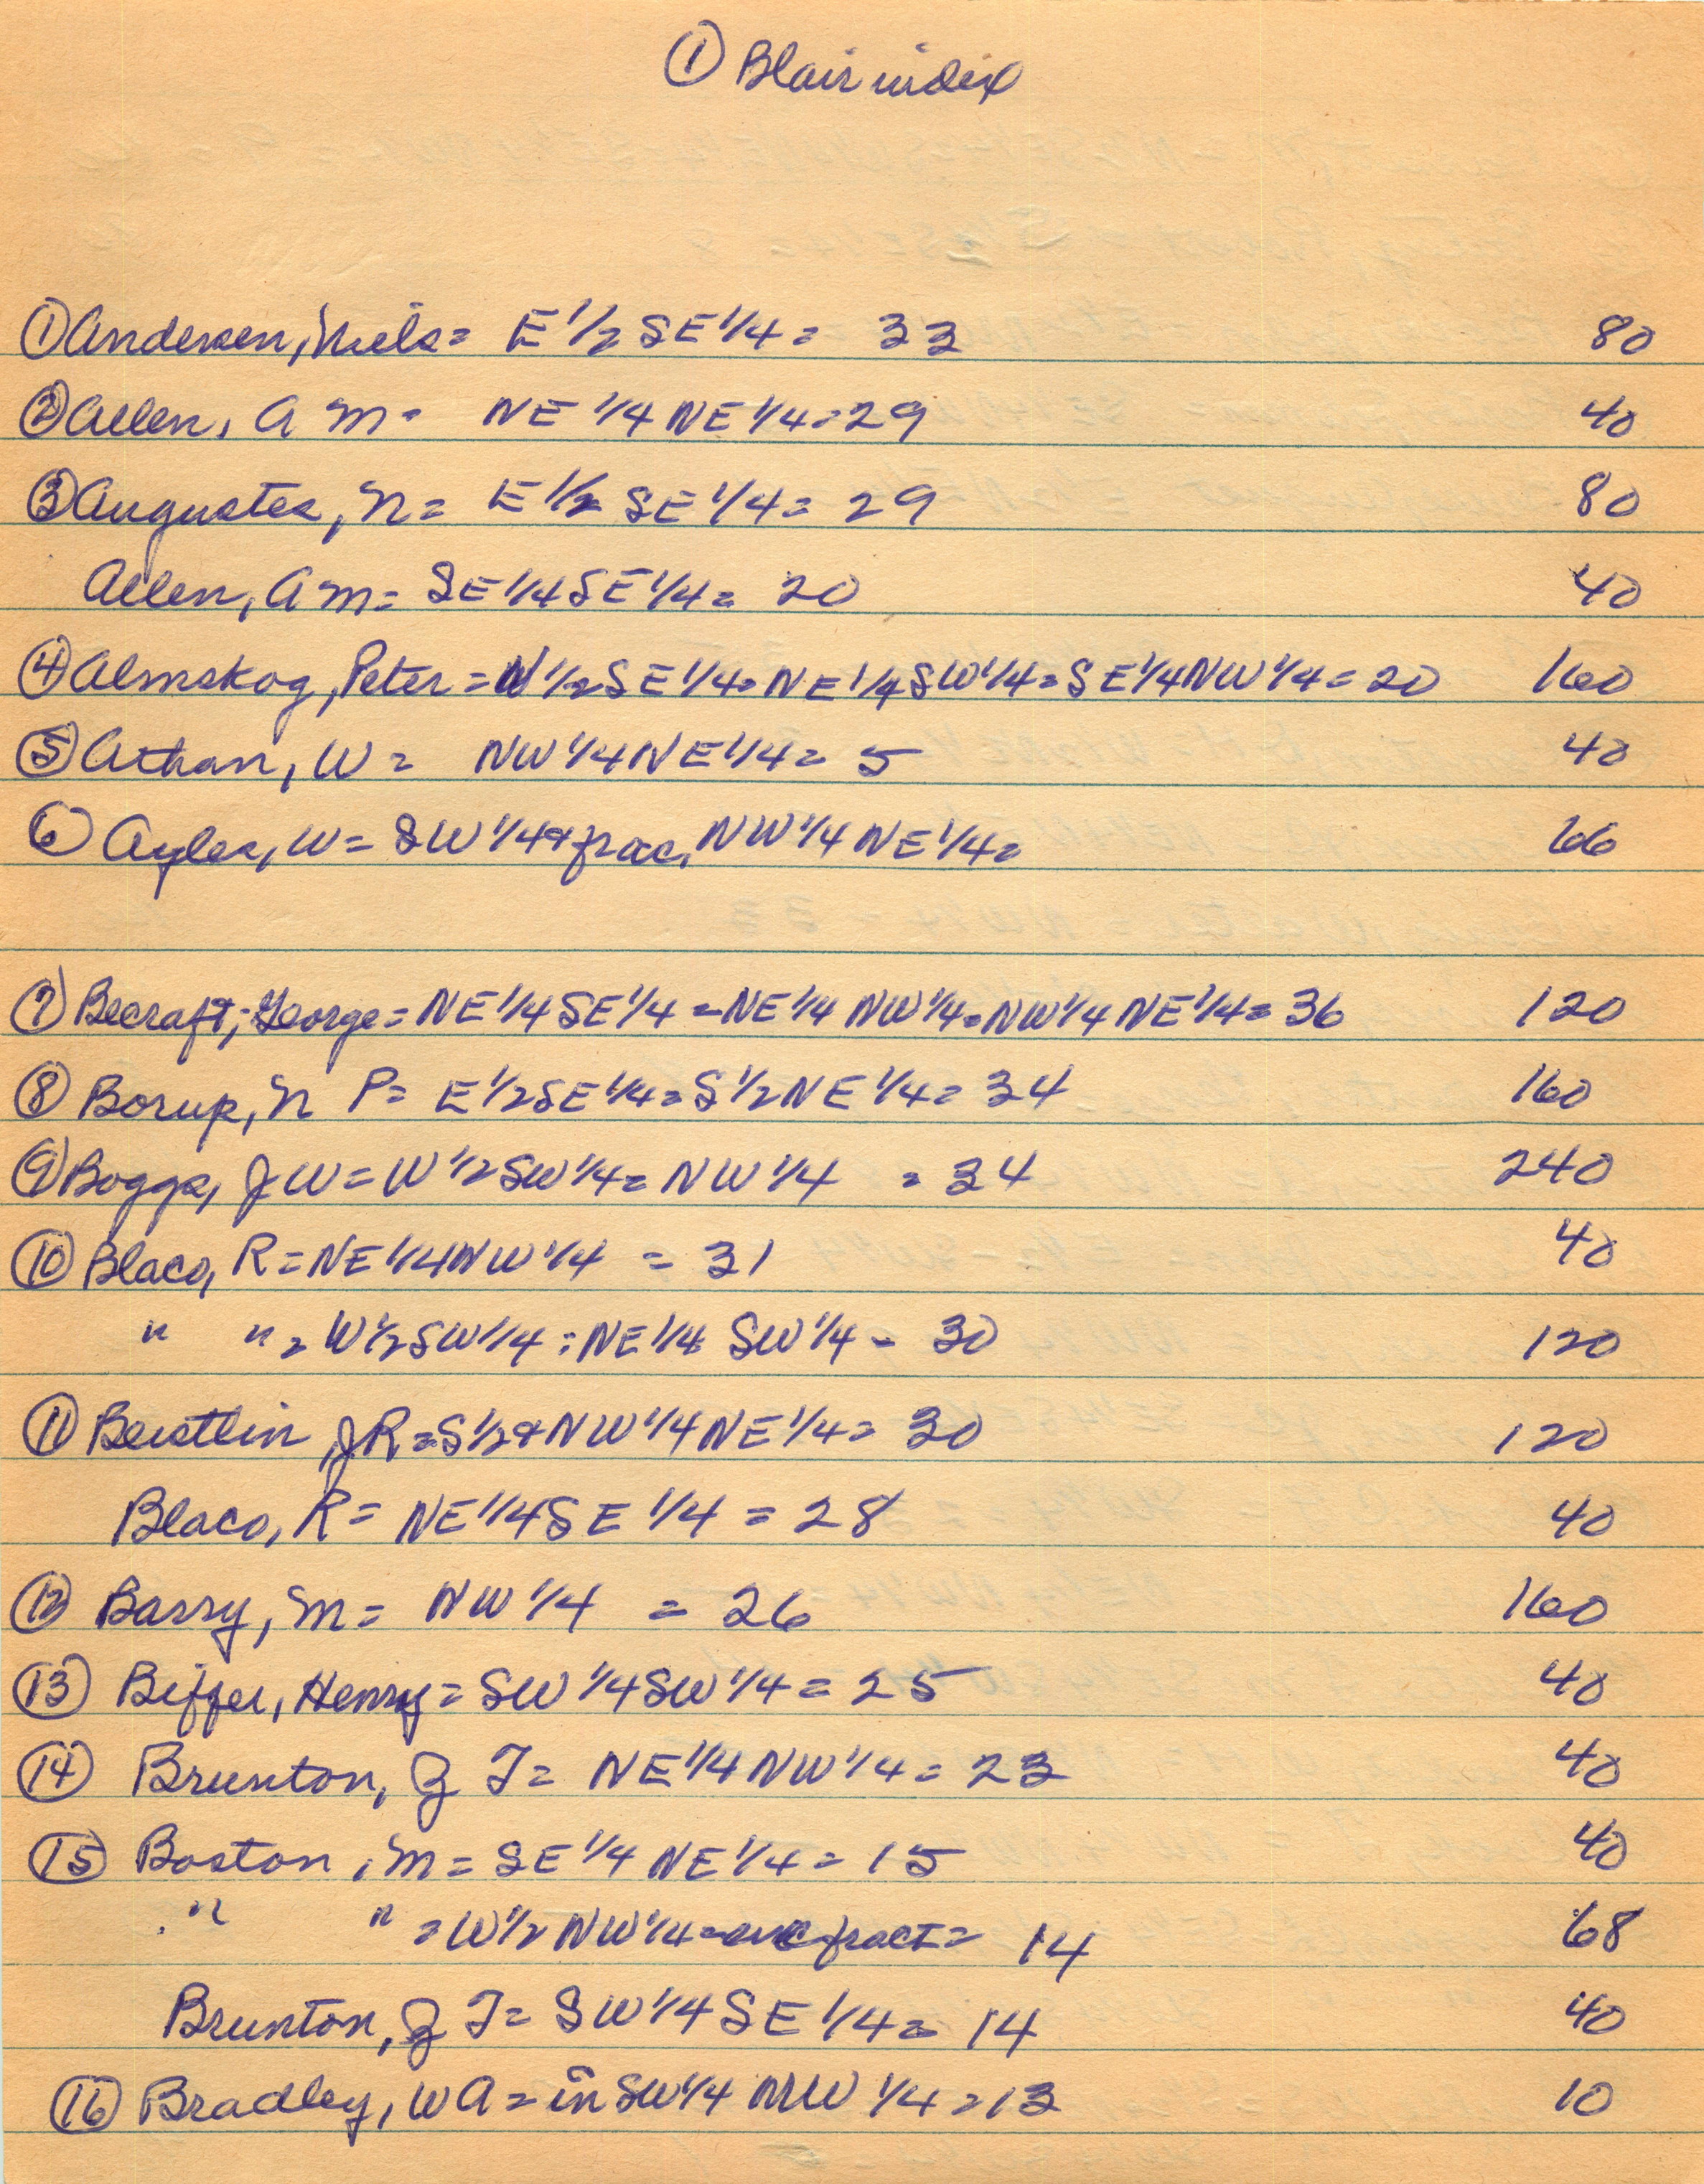 ① Blair index
① Andersen, Niels = E 1/2 SE 1/4 = 33 80
② Allen, A M = NE 1/4 NE 1/4 = 29 40
③ Augustes, N = E 1/2 SE 1/4 = 29 80
Allen, A M = SE 1/4 SE 1/4 = 20 40
④ Almskog, Peter = N 1/2 SE 1/4 = NE 1/4 SW 1/4 = SE 1/4 NW 1/4 = 20 160
⑤ Athan, W = NW 1/4 NE 1/4 = 5 40
⑥ Ayles, W = SW 1/4 & frac, NW 1/4 NE 1/4 = 66
⑦ Becraft, George = NE 1/4 SE 1/4 = NE 1/4 NW 1/4 = NW 1/4 NE 1/4 = 36 120
⑧ Borup, N P = E 1/2 SE 1/4 = S 1/2 NE 1/4 = 34 160
⑨ Boggs, J W = W 1/2 SW 1/4 = NW 1/4 = 34 240
⑩ Blaco, R = NE 1/4 NW 1/4 = 31 40
" " = W 1/2 SW 1/4 = NE 1/4 SW 1/4 - 30 120
⑪ Beistlin, J R = S 1/2 & NW 1/4 NE 1/4 = 30 120
Blaco, R = NE 1/4 SE 1/4 = 28 40
⑫ Barry, M = NW 1/4 = 26 160
⑬ Biffer, Henry = SW 1/4 SW 1/4 = 25 40
⑭ Brunton, J T = NE 1/4 NW 1/4 = 23 40
⑮ Boston, M = SE 1/4 NE 1/4 = 15 40
" " = W 1/2 NW 1/4 = fract = 14 68
Brunton, J T = SW 1/4 SE 1/4 = 14 40
⑯ Bradley, W A = in SW 1/4 NW 1/4 = 13 10